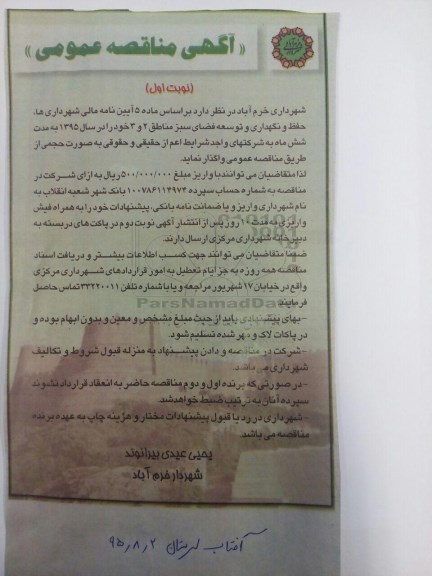 « آگهی مناقصه عمومی »
(نوبت اول)
شهرداری خرم آباد در نظر دارد بر اساس ماده ۵ آیین نامه مالی شهرداری ها،
حفظ و نگهداری و توسعه فضای سبز مناطق ۲ و ۳ خود را در سال ۱۳۹۵ به مدت
شش ماه به شرکتهای واجد شرایط اعم از حقیقی و حقوقی به صورت حجمی از
طریق مناقصه عمومی واگذار نماید.
لذا متقاضیان می توانند با واریز مبلغ ۵۰۰/۰۰۰/۰۰۰ ریال به ازای شرکت در
مناقصه به شماره حساب سپرده ۱۰۰۷۸۶۱۱۴۹۷۴ بانک شهر شعبه انقلاب به
نام شهرداری واریز و یا ضمانت نامه بانکی، پیشنهادات خود را به همراه فیش
واریزی به مدت ۱۰ روز پس از انتشار آگهی نوبت دوم در پاکت های دربسته به
دبیرخانه شهرداری مرکزی ارسال دارند.
ضمنا متقاضیان می توانند جهت کسب اطلاعات بیشتر و دریافت اسناد
مناقصه همه روزه به جز ایام تعطیل به امور قراردادهای شهرداری مرکزی
واقع در خیابان ۱۷ شهریور مراجعه و یا با شماره تلفن ۳۳۲۲۰۰۱۱ تماس حاصل
فرمایند.
ParsNamadData
-بهای پیشنهادی باید از حیث مبلغ مشخص و معین و بدون ابهام بوده و
در پاکات لاک و مهر شده تسلیم شود.
-شرکت در مناقصه و دادن پیشنهاد به منزله قبول شروط و تکالیف
شهرداری می باشد.
-در صورتی که برنده اول و دوم مناقصه حاضر به انعقاد قرارداد نشوند
سپرده آنان به ترتیب ضبط خواهد شد.
-شهرداری در رد یا قبول پیشنهادات مختار و هزینه چاپ به عهده برنده
مناقصه می باشد.
یحیی عیدی بیرانوند
شهردار خرم آباد
آفتاب لرستان ۹۵٫۸٫۲